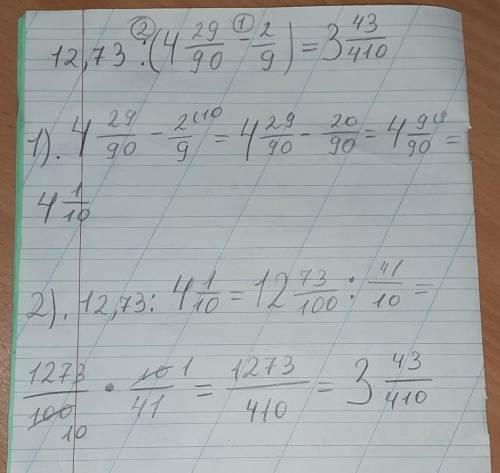 12,73 :② (4 29/90 -① 2/9) = 3 43/410
1). 4 29/90 - 2/9 (10 = 4 29/90 - 20/90 = 4 9/90 (9 =
4 1/10
2). 12,73 : 4 1/10 = 12 73/100 : 41/10 =
1273/100 10 · 10 1/41 = 1273/410 = 3 43/410